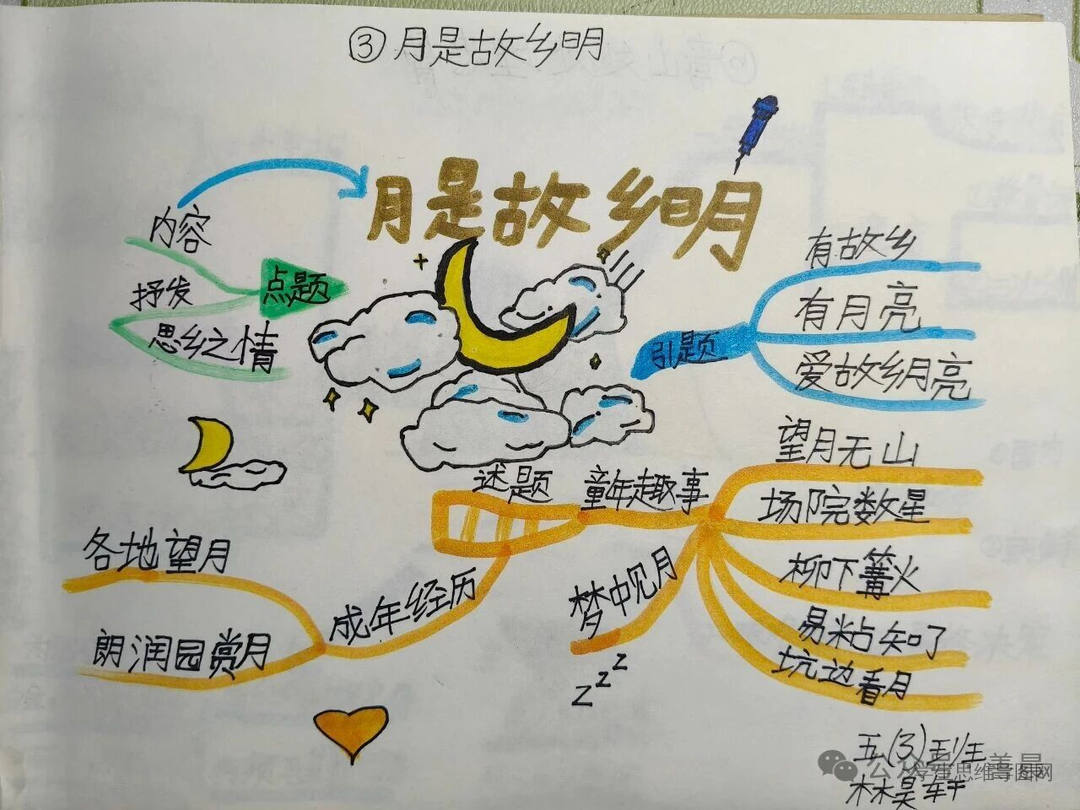 ③月是故乡明
月是故乡明
内容
抒发
思乡之情
点题
引题
有故乡
有月亮
爱故乡月亮
述题
童年趣事
望月无山
场院数星
柳下篝火
易粘知了
坑边看月
梦中见月
z z z
成年经历
各地望月
朗润园赏月
五(3)班
林昊轩
学生思维导图网